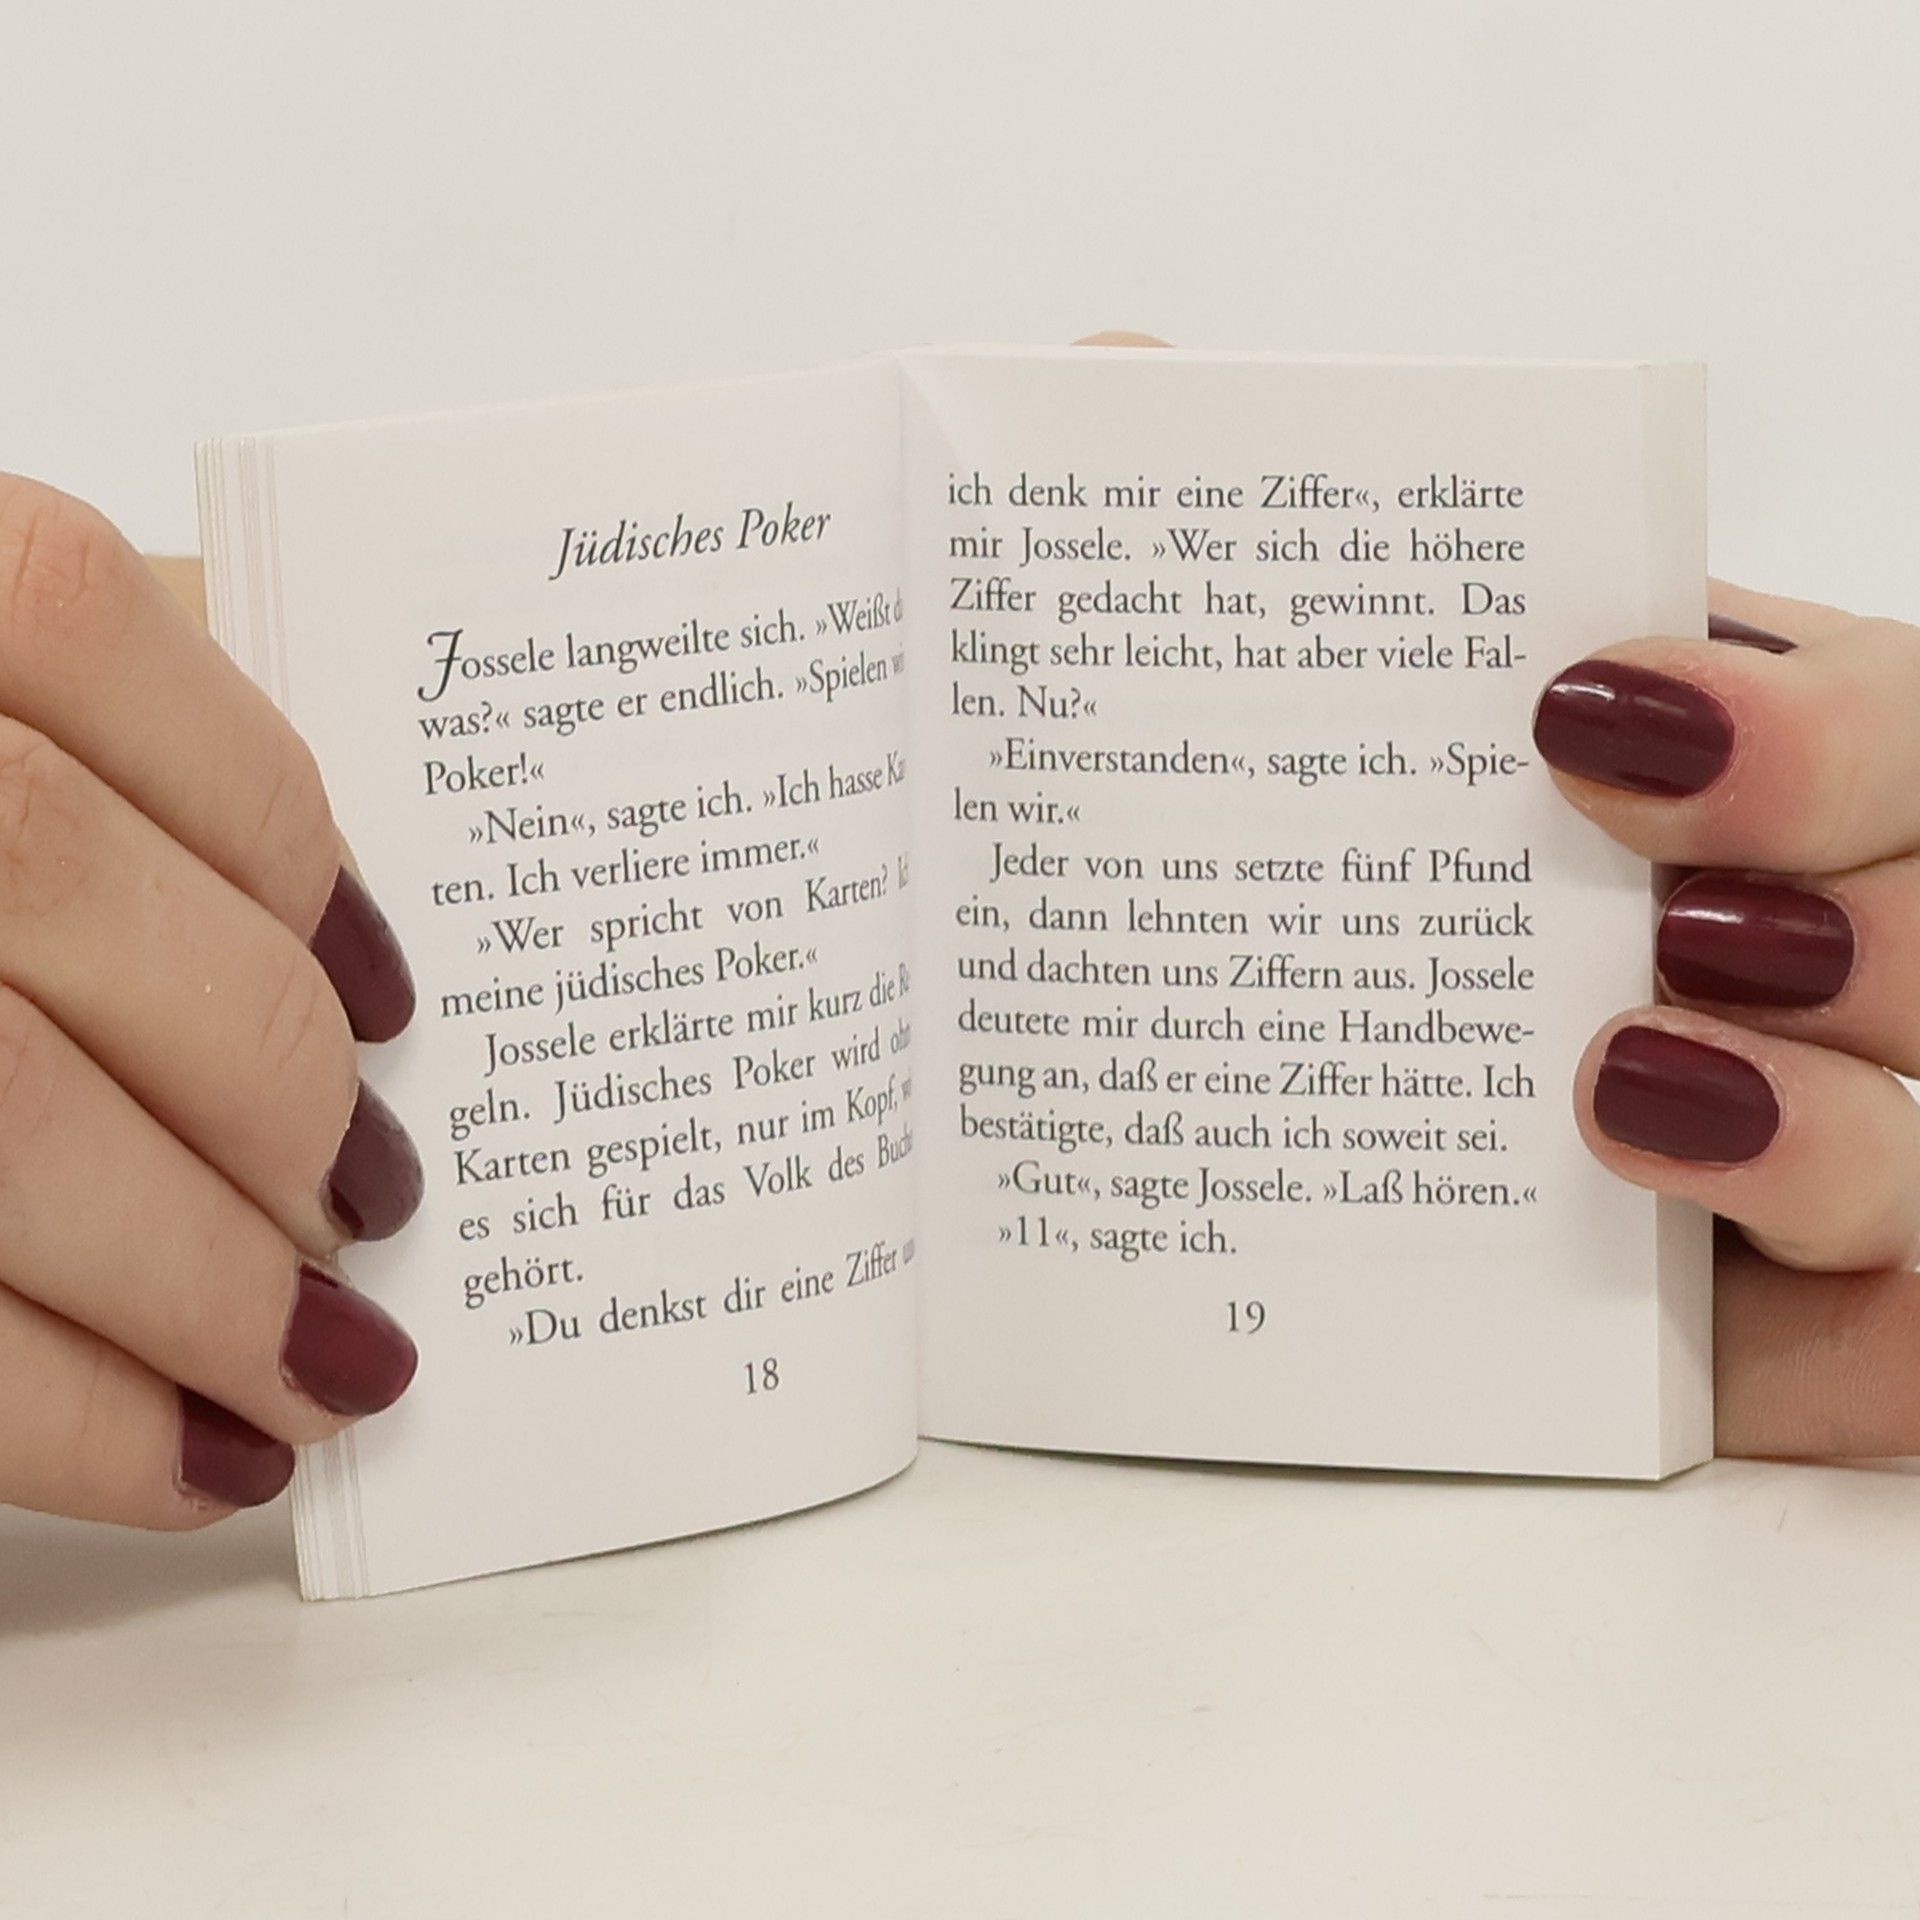 Jüdisches Poker
Jossele langweilte sich. »Weißt
was?« sagte er endlich. »Spielen
Poker!«
»Nein«, sagte ich. »Ich hasse
ten. Ich verliere immer.«
»Wer spricht von Karten?
meine jüdisches Poker.«
Jossele erklärte mir kurz die
geln. Jüdisches Poker wird
Karten gespielt, nur im Kopf,
es sich für das Volk des
gehört.
»Du denkst dir eine Ziffer
18
ich denk mir eine Ziffer«, erklärte
mir Jossele. »Wer sich die höhere
Ziffer gedacht hat, gewinnt. Das
klingt sehr leicht, hat aber viele Fal-
len. Nu?«
»Einverstanden«, sagte ich. »Spie-
len wir.«
Jeder von uns setzte fünf Pfund
ein, dann lehnten wir uns zurück
und dachten uns Ziffern aus. Jossele
deutete mir durch eine Handbewe-
gung an, daß er eine Ziffer hätte. Ich
bestätigte, daß auch ich soweit sei.
»Gut«, sagte Jossele. »Laß hören.«
»11«, sagte ich.
19